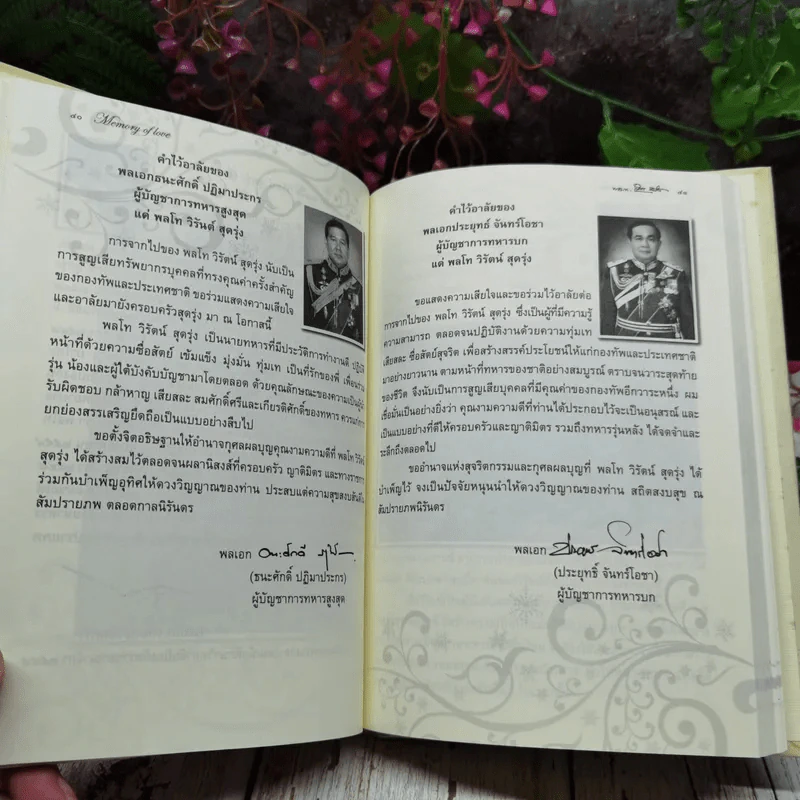 ๘๐ Memory of love
คำไว้อาลัยของ
พลเอกธนะศักดิ์ ปฏิมาประกร
ผู้บัญชาการทหารสูงสุด
แด่ พลโท วิรัตน์ สุดรุ่ง
การจากไปของ พลโท วิรัตน์ สุดรุ่ง นับเป็น
การสูญเสียทรัพยากรบุคคลที่ทรงคุณค่าครั้งสำคัญ
ของกองทัพและประเทศชาติ ขอร่วมแสดงความเสียใจ
และอาลัยมายังครอบครัวสุดรุ่ง มา ณ โอกาสนี้
พลโท วิรัตน์ สุดรุ่ง เป็นนายทหารที่มีประวัติการทำงานดี
หน้าที่ด้วยความซื่อสัตย์ เข้มแข็ง มุ่งมั่น ทุ่มเท เป็นที่รักของพี่ เพื่อนร่วม
รุ่น น้องและผู้ใต้บังคับบัญชามาโดยตลอด ด้วยคุณลักษณะของความเป็นผู้นำ
รับผิดชอบ กล้าหาญ เสียสละ สมศักดิ์ศรีและเกียรติศักดิ์ของทหาร
ยกย่องสรรเสริญยึดถือเป็นแบบอย่างสืบไป
ขอตั้งจิตอธิษฐานให้อำนาจกุศลผลบุญคุณงามความดีที่ พลโท วิรัตน์
สุดรุ่ง ได้สร้างสมไว้ตลอดจนผลานิสงส์ที่ครอบครัว ญาติมิตร และทางราชการ
ร่วมกันบำเพ็ญอุทิศให้ดวงวิญญาณของท่าน ประสบแต่ความสุขสงบ
สัมปรายภพ ตลอดกาลนิรันดร
พลเอก
(ธนะศักดิ์ ปฏิมาประกร)
ผู้บัญชาการทหารสูงสุด
๘๑
คำไว้อาลัยของ
พลเอกประยุทธ์ จันทร์โอชา
ผู้บัญชาการทหารบก
แด่ พลโท วิรัตน์ สุดรุ่ง
ขอแสดงความเสียใจและขอร่วมไว้อาลัยต่อ
การจากไปของ พลโท วิรัตน์ สุดรุ่ง ซึ่งเป็นผู้ที่มีความรู้
ความสามารถ ตลอดจนปฏิบัติงานด้วยความทุ่มเท
เสียสละ ซื่อสัตย์สุจริต เพื่อสร้างสรรค์ประโยชน์ให้แก่กองทัพและประเทศชาติ
มาอย่างยาวนาน ตามหน้าที่ทหารของชาติอย่างสมบูรณ์ ตราบจนวาระสุดท้าย
ของชีวิต จึงนับเป็นการสูญเสียบุคคลที่มีคุณค่าของกองทัพอีกวาระหนึ่ง ผม
เชื่อมั่นเป็นอย่างยิ่งว่า คุณงามความดีที่ท่านได้ประกอบไว้จะเป็นอนุสรณ์ และ
เป็นแบบอย่างที่ดีให้ครอบครัวและญาติมิตร รวมถึงทหารรุ่นหลัง ได้จดจำและ
ระลึกถึงตลอดไป
ขออำนาจแห่งสุจริตกรรมและกุศลผลบุญที่ พลโท วิรัตน์ สุดรุ่ง ได้
บำเพ็ญไว้ จงเป็นปัจจัยหนุนนำให้ดวงวิญญาณของท่าน สถิตสงบสุข ณ
สัมปรายภพนิรันดร
พลเอก
(ประยุทธ์ จันทร์โอชา)
ผู้บัญชาการทหารบก